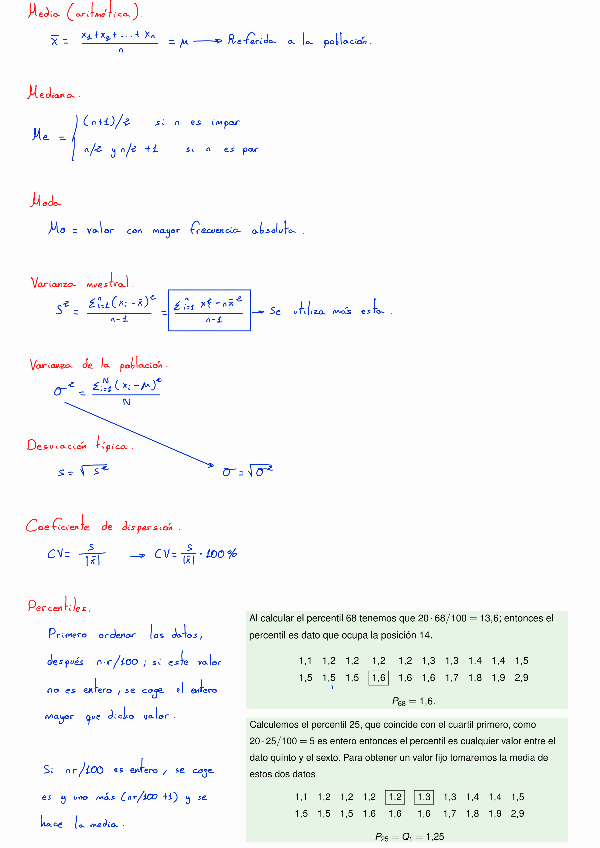 Media (aritmética).
x̄ = x1+x2+...+xn / n = μ → Referida a la población.
Mediana.
Me = { (n+1)/2 si n es impar
n/2 y n/2 +1 si n es par
Moda
Mo = valor con mayor frecuencia absoluta.
Varianza muestral.
S² = Σⁿi=1(xi - x̄)² / n-1 = Σⁿi=1 xi² - nx̄² / n-1 → Se utiliza más esta.
Varianza de la población.
σ² = Σᴺi=1(xi - μ)² / N
Desviación típica.
s = √s² σ = √σ²
Coeficiente de dispersión.
CV = s / |x̄| → CV = s / |x̄| · 100%
Percentiles.
Primero ordenar los datos,
después n·r/100; si este valor
no es entero, se coge el entero
mayor que dicho valor.
Si nr/100 es entero, se coge
es y uno más (nr/100 +1) y se
hace la media.
Al calcular el percentil 68 tenemos que 20·68/100 = 13,6; entonces el
percentil es dato que ocupa la posición 14.
1,1 1,2 1,2 1,2 1,2 1,3 1,3 1,4 1,4 1,5
1,5 1,5 1,5 1,6 1,6 1,6 1,7 1,8 1,9 2,9
P68 = 1,6.
Calculemos el percentil 25, que coincide con el cuartil primero, como
20·25/100 = 5 es entero entonces el percentil es cualquier valor entre el
dato quinto y el sexto. Para obtener un valor fijo tomaremos la media de
estos dos datos
1,1 1,2 1,2 1,2 1,2 1,3 1,3 1,4 1,4 1,5
1,5 1,5 1,5 1,6 1,6 1,6 1,7 1,8 1,9 2,9
P25 = Q1 = 1,25